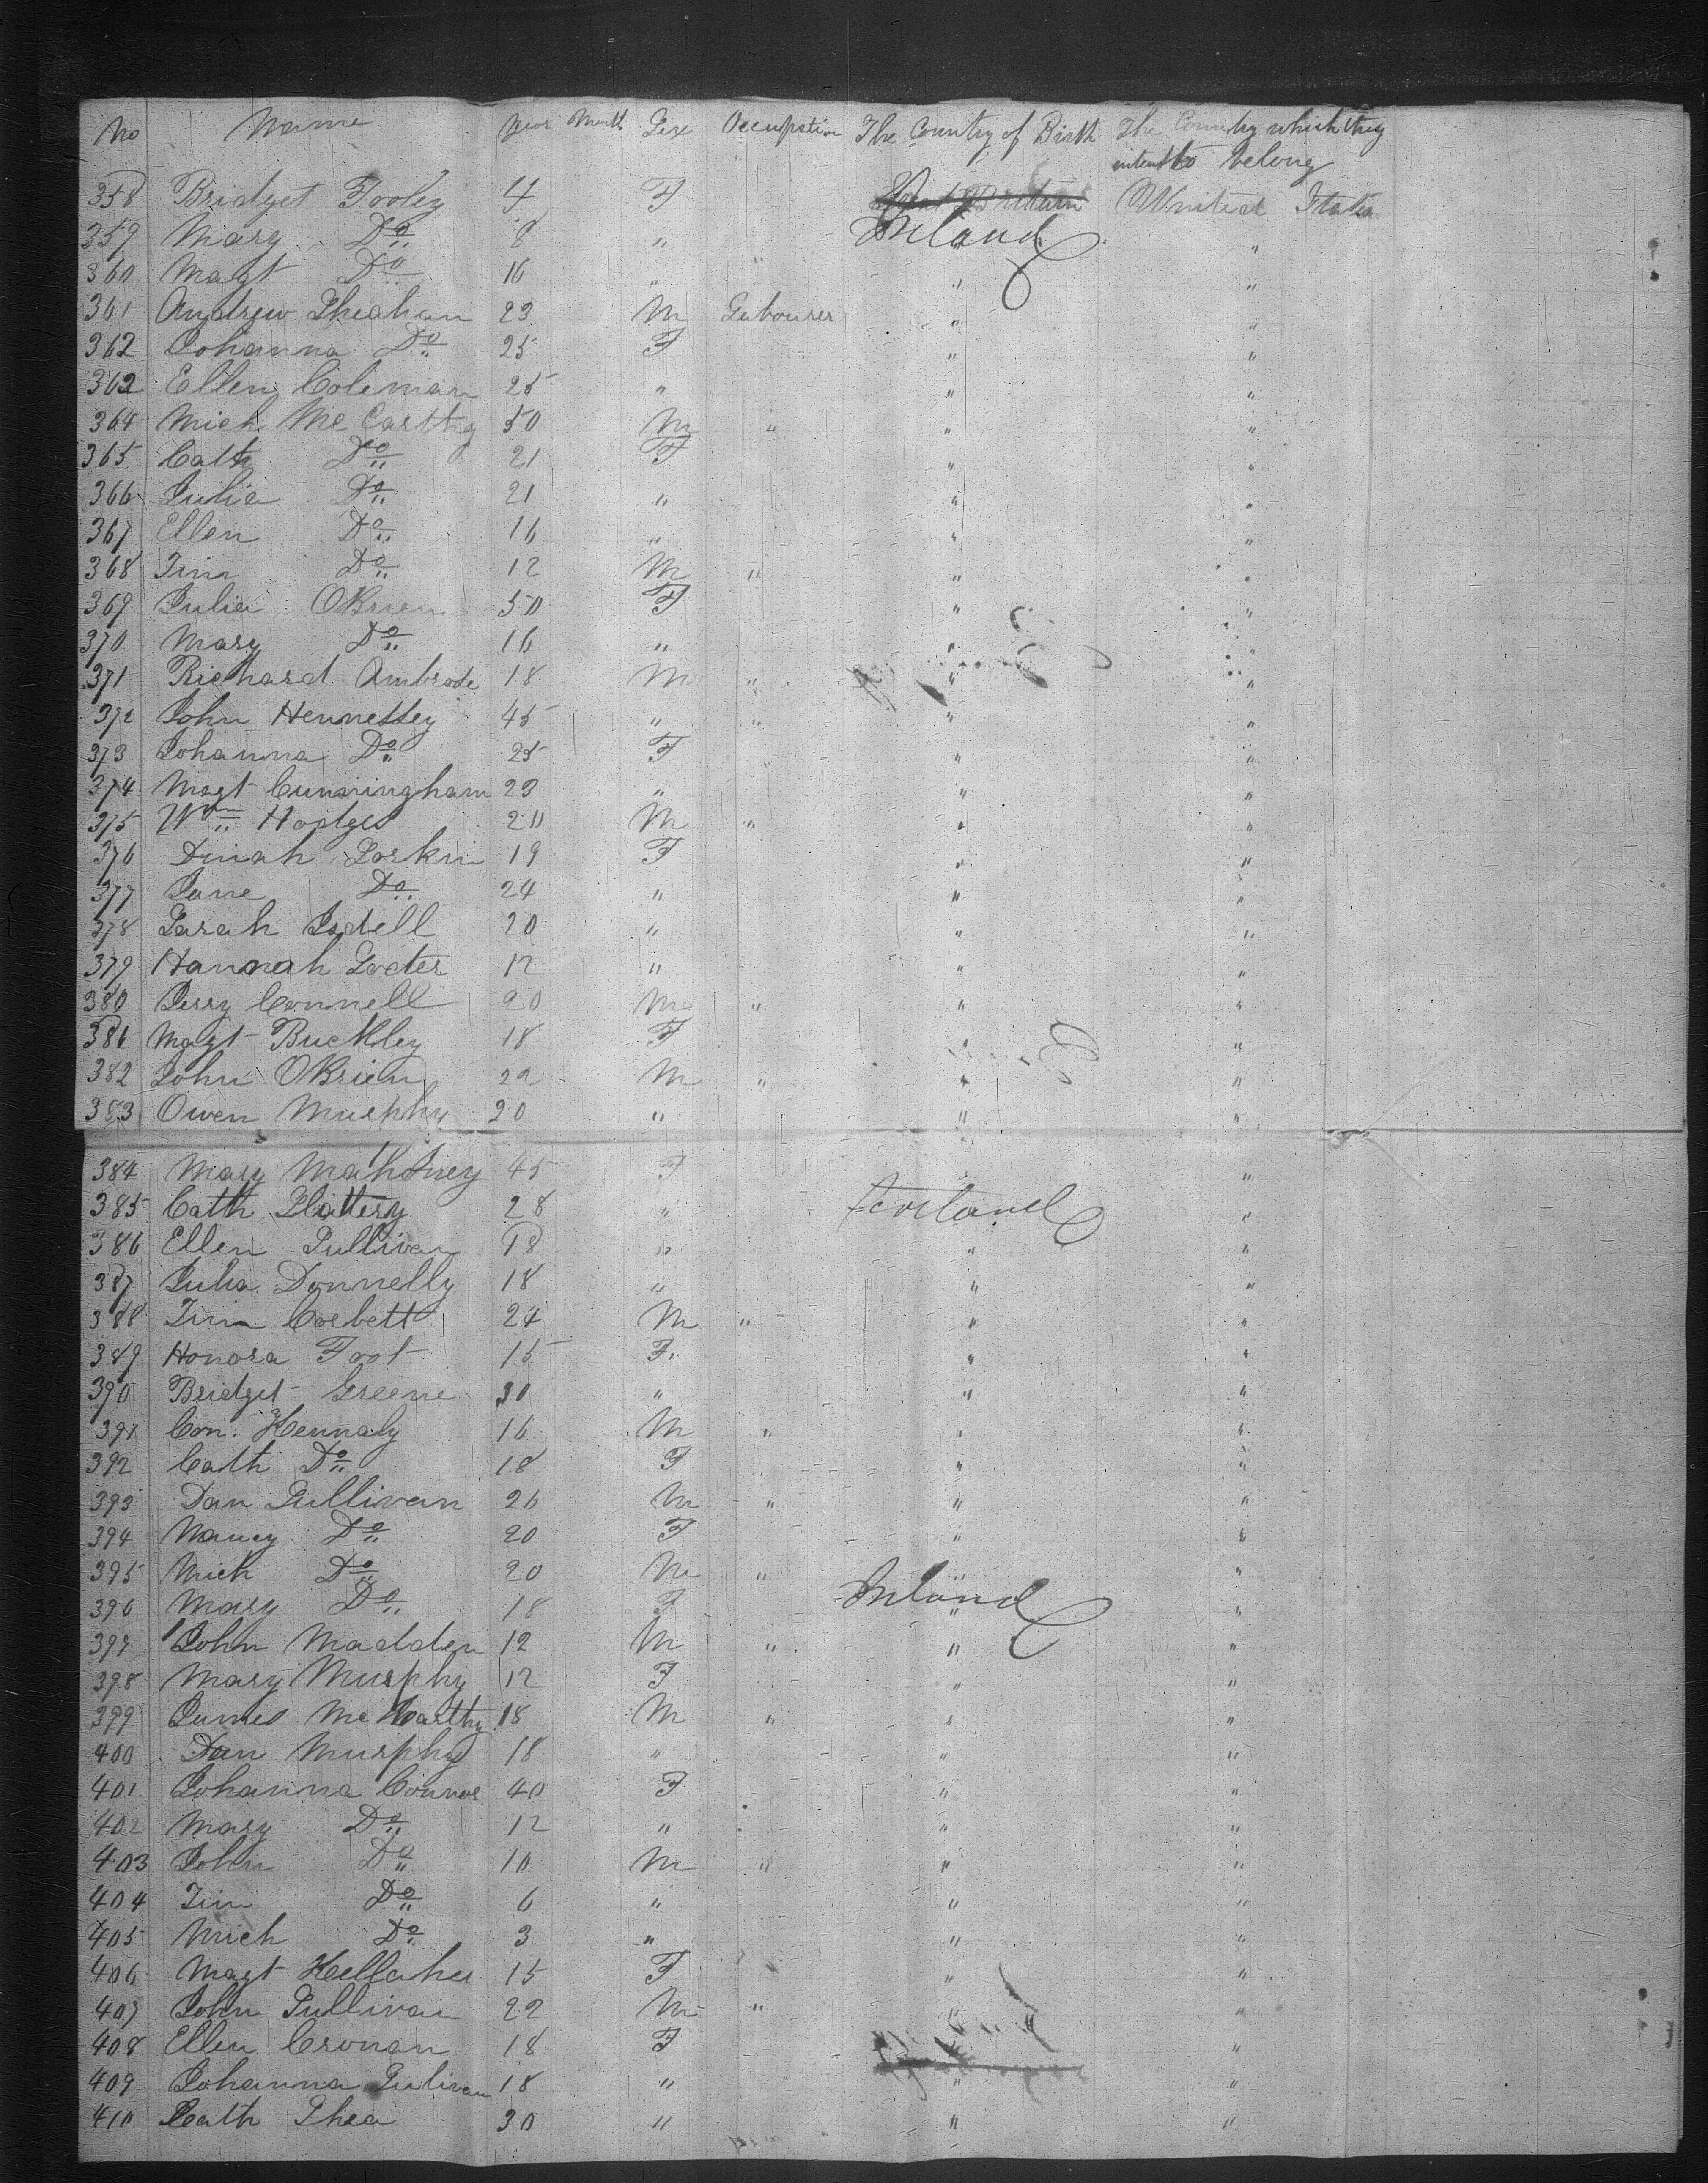 No Name Year Month Sex Occupation The Country of Birth The Country which they
intend to belong
358 Bridget Fooley 4 F Great Brittain United States
359 Mary Do 8 " Ireland "
360 Magt Do 16 " " " "
361 Andrew Sheahan 23 M Labourer " "
362 Johanna Do 25 F " "
363 Ellen Coleman 25 " " "
364 Mich Mc Carthy 50 M " " "
365 Cath Do 21 F " "
366 Julia Do 21 " " "
367 Ellen Do 16 " " "
368 Tim Do 12 M " " "
369 Julia OBrien 50 F " "
370 Mary Do 16 " " "
371 Richard Ambrose 18 M " " "
372 John Hennessey 45 " " " "
373 Johanna Do 25 F " "
374 Magt Cunningham 23 " " "
375 Wm Hodges 20 M " " "
376 Dinah Lorkin 19 F " "
377 Jane Do 24 " " "
378 Sarah Isdell 20 " " "
379 Hannah Locter 12 " " "
380 Jerry Connell 20 M " " "
381 Magt Buckley 18 F " "
382 John OBrien 22 M " " "
383 Owen Murphy 20 " " "
384 Mary Mahoney 45 F "
385 Cath Slattery 28 " Ireland "
386 Ellen Sullivan 18 " " "
387 Julia Donnelly 18 " " "
388 Tim Corbett 24 M " " "
389 Honora Foot 15 F. " "
390 Bridget Greene 30 " " "
391 Con. Kennaly 16 M " " "
392 Cath Do 18 F " "
393 Dan Sullivan 26 M " " "
394 Nancy Do 20 F " "
395 Mich Do 20 M " " "
396 Mary Do 18 F Ireland "
397 John Madden 12 M " " "
398 Mary Murphy 12 F " "
399 James Mc Carthy 18 M " " "
400 Dan Murphy 18 " " "
401 Johanna Connor 40 F " "
402 Mary Do 12 " " "
403 John Do 10 M " " "
404 Tim Do 6 " " "
405 Mich Do 3 " " "
406 Magt Kellaher 15 F " "
407 John Sullivan 22 M " " "
408 Ellen Cronan 18 F " "
409 Johanna Sulivan 18 " " "
410 Cath Shea 30 " " "